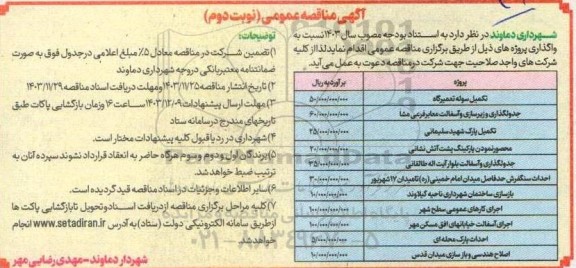 آگهی مناقصه عمومی (نوبت دوم)
شهرداری دماوند در نظر دارد به استناد بودجه مصوب سال ۱۴۰۳ نسبت به
واگذاری پروژه های ذیل از طریق برگزاری مناقصه عمومی اقدام نماید لذا از کلیه
شرکت های واجد صلاحیت جهت شرکت در مناقصه دعوت به عمل می آید.
پروژه برآورد به ریال
تکمیل سوله تعمیرگاه ۵۰/۰۰۰/۰۰۰/۰۰۰
جدولگذاری و زیرسازی و آسفالت معابر فرعی مشا ۶۰/۰۰۰/۰۰۰/۰۰۰
تکمیل پارک شهید سلیمانی ۲۵/۰۰۰/۰۰۰/۰۰۰
محصور نمودن پارکینگ پشت آتش نشانی ۲۰/۰۰۰/۰۰۰/۰۰۰
جدولگذاری و آسفالت بلوار آیت اله طالقانی ۳۵/۰۰۰/۰۰۰/۰۰۰
احداث سنگفرش حدفاصل میدان امام خمینی (ره) تا میدان ۱۷ شهریور ۳۰/۰۰۰/۰۰۰/۰۰۰
بازسازی ساختمان شهرداری ناحیه گیلاوند ۱۰/۰۰۰/۰۰۰/۰۰۰
اجرای کارهای عمومی سطح شهر ۱۰۰/۰۰۰/۰۰۰/۰۰۰
اجرای آسفالت خیابانهای افق مسکن مهر ۱۰۰/۰۰۰/۰۰۰/۰۰۰
احداث پارک محله ای ۵/۰۰۰/۰۰۰/۰۰۰
اصلاح هندسی و باز سازی میدان قدس ۱۰/۰۰۰/۰۰۰/۰۰۰
توضیحات:
۱) تضمین شرکت در مناقصه معادل ۵٪ مبلغ اعلامی در جدول فوق به صورت
ضمانتنامه معتبر بانکی در وجه شهرداری دماوند
۲) تاریخ انتشار مناقصه ۱۴۰۳/۱۱/۲۵ و مهلت دریافت اسناد مناقصه ۱۴۰۳/۱۱/۲۹
۳) مهلت ارسال پیشنهادات ۱۴۰۳/۱۲/۰۹ ساعت ۱۶ و زمان بازگشایی پاکات طبق
تاریخهای مندرج در سامانه ستاد
۴) شهرداری در رد یا قبول کلیه پیشنهادات مختار است.
۵) برندگان اول و دوم و سوم هرگاه حاضر به انعقاد قرارداد نشوند سپرده آنان به
ترتیب ضبط خواهد شد.
۶) سایر اطلاعات و جزئیات در اسناد مناقصه قید گردیده است.
۷) کلیه مراحل برگزاری مناقصه از دریافت اسناد و تحویل تا بازگشایی پاکت ها
از طریق سامانه الکترونیکی دولت (ستاد) به آدرس www.setadiran.ir انجام
خواهد شد.
شهردار دماوند - مهدی رضایی مهر